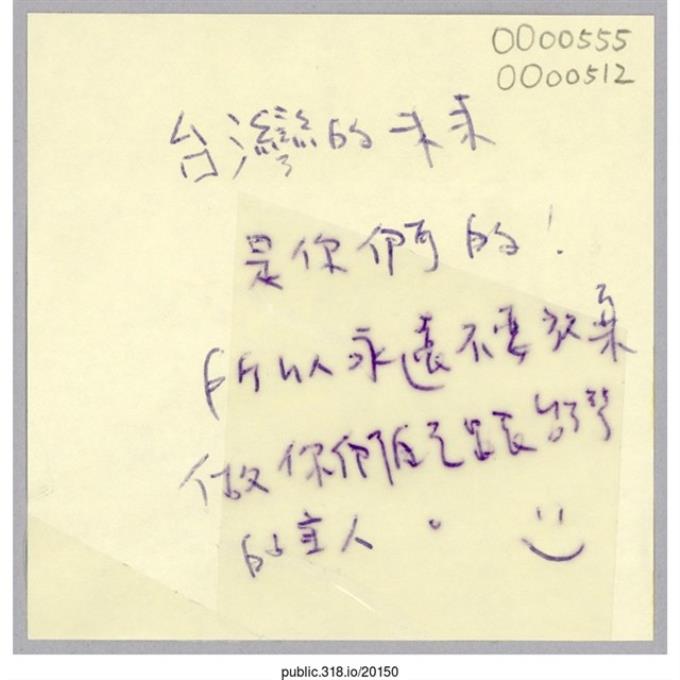 0000555
0000512
台灣的未來
是你們的！
所以永遠不要放棄
做你們自己
的主人。
public.318.io/20150